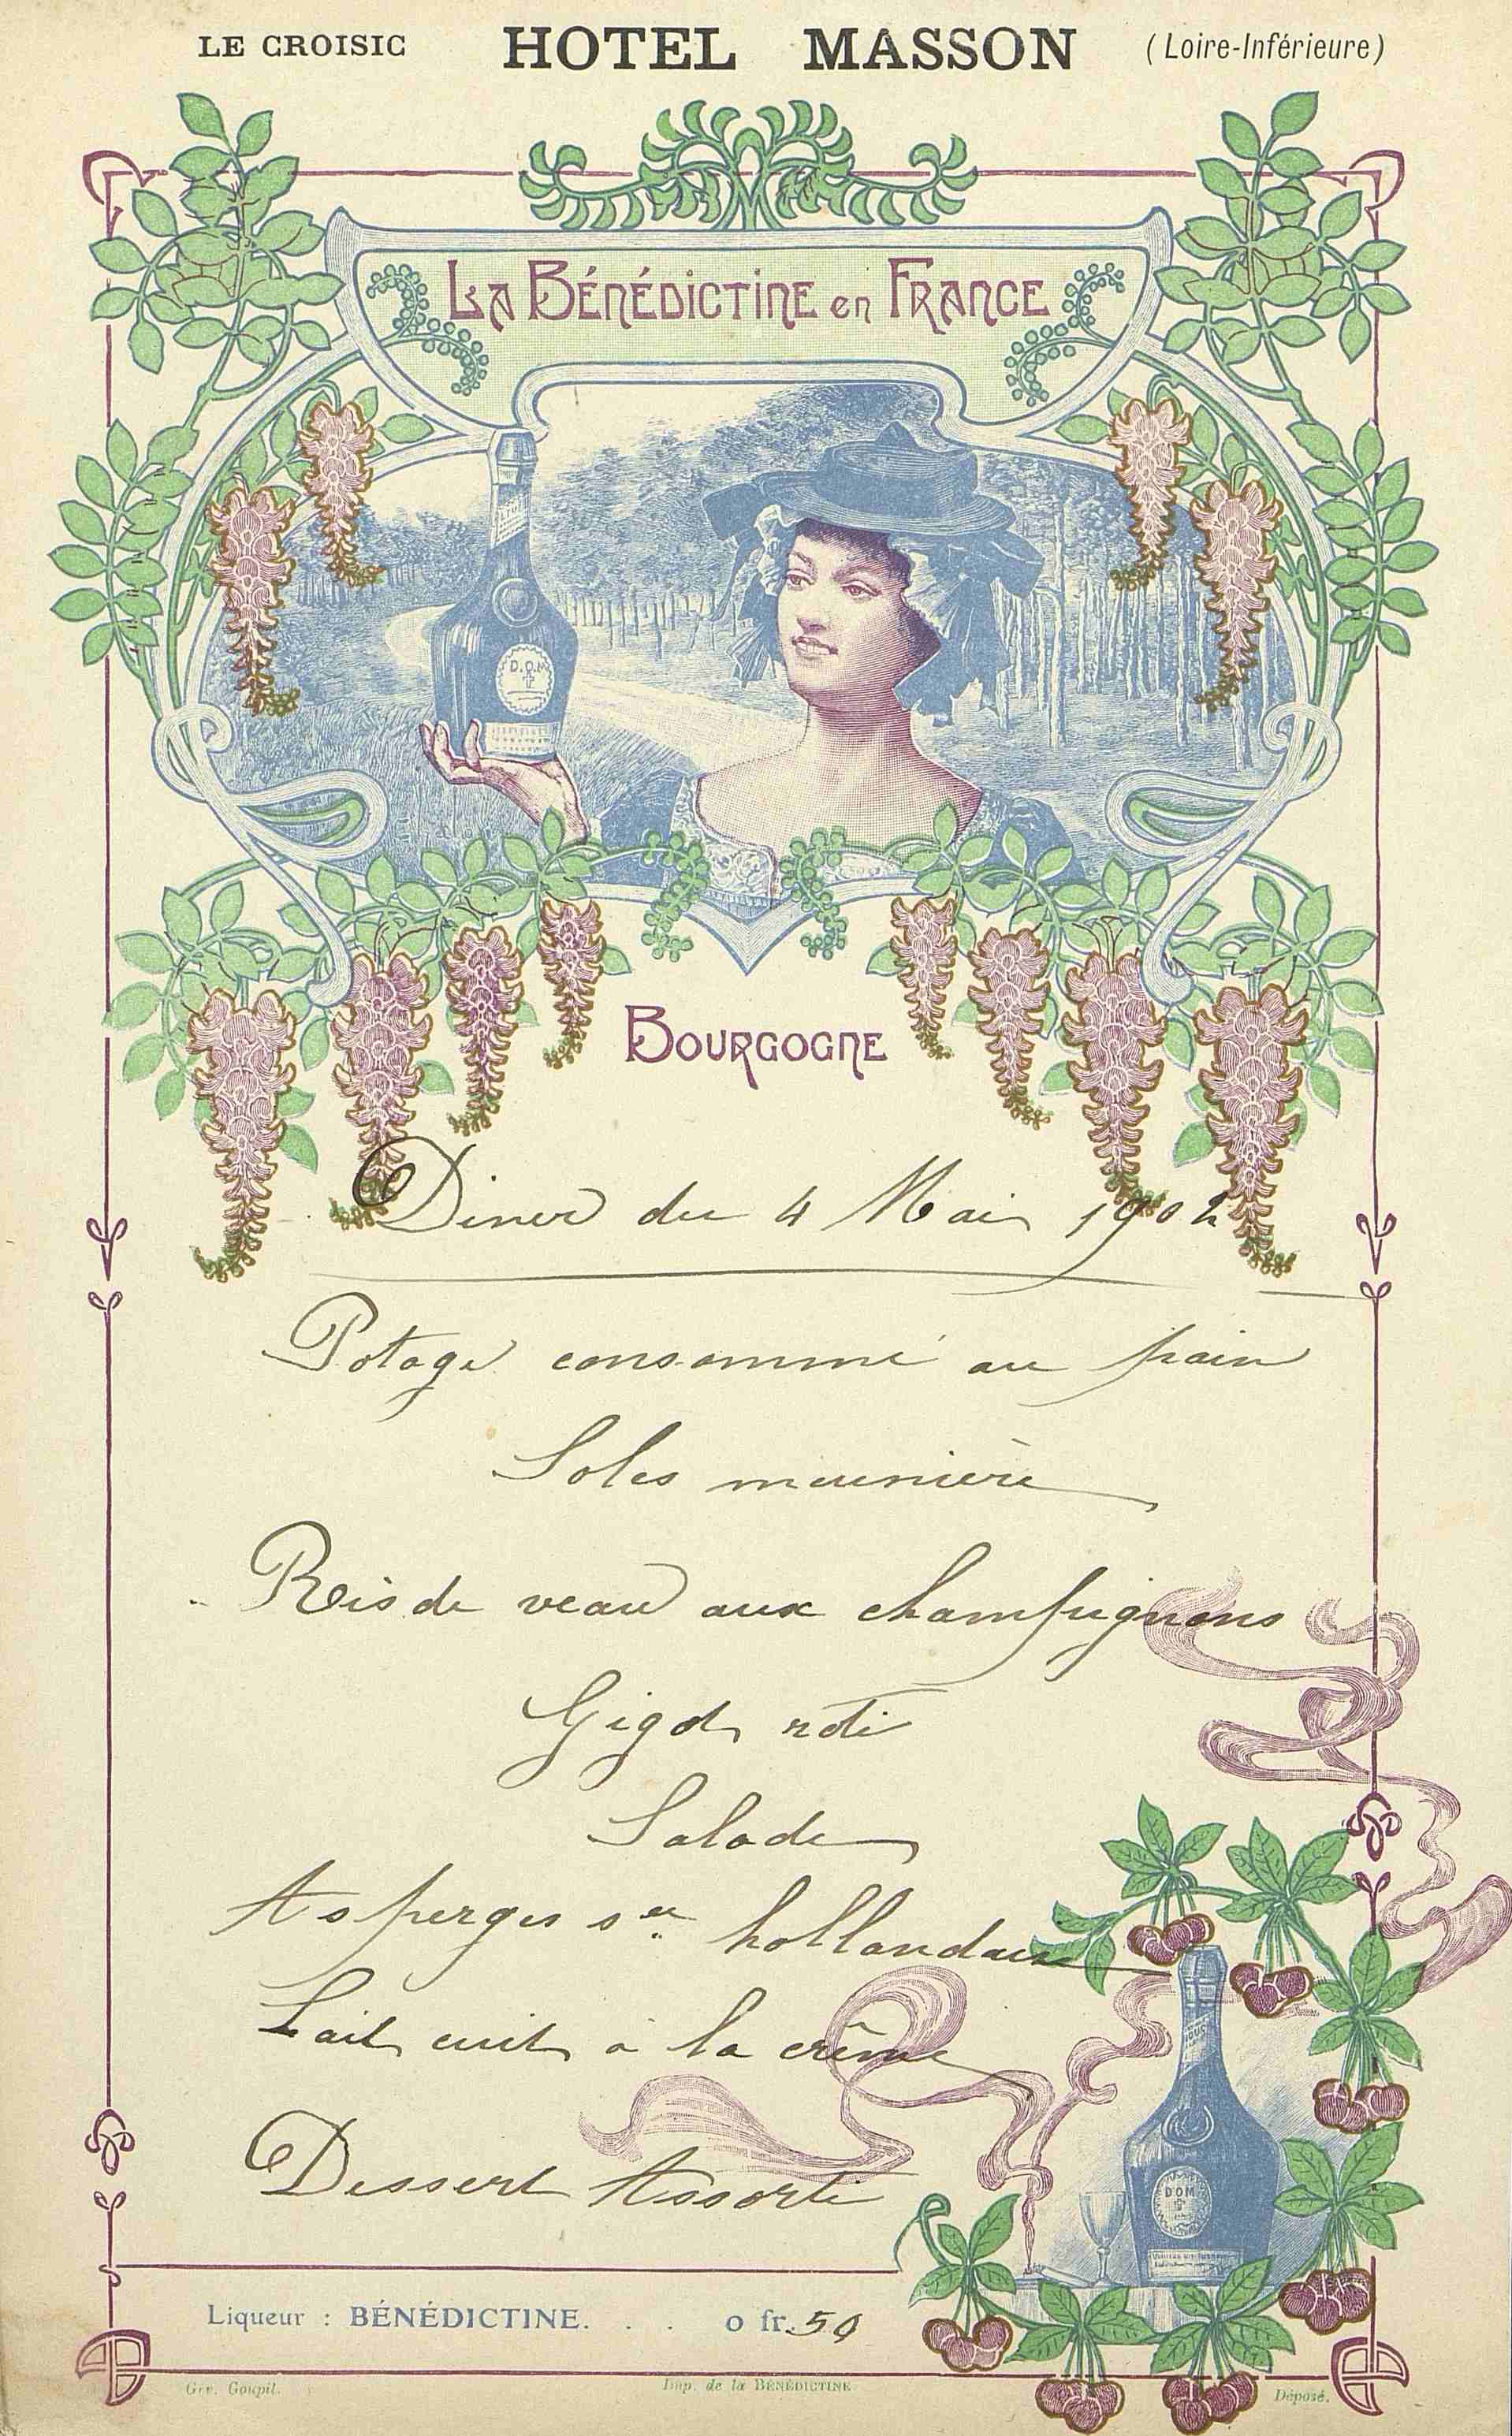 LE CROISIC HOTEL MASSON (Loire-Inférieure)
LA BÉNÉDICTINE en FRANCE
D.O.M
BOURGOGNE
Diner du 4 Mai 1902
Potage consommé au pain
Soles meunière
Reis de veau aux champignons
Gigot rôti
Salade
Asperges s.ce hollandaise
Lait cuit à la crême
Dessert Assorti
DOM
Liqueur : BÉNÉDICTINE. . . 0 fr. 50
Grv. Goupil.
Imp. de la BÉNÉDICTINE
Déposé.